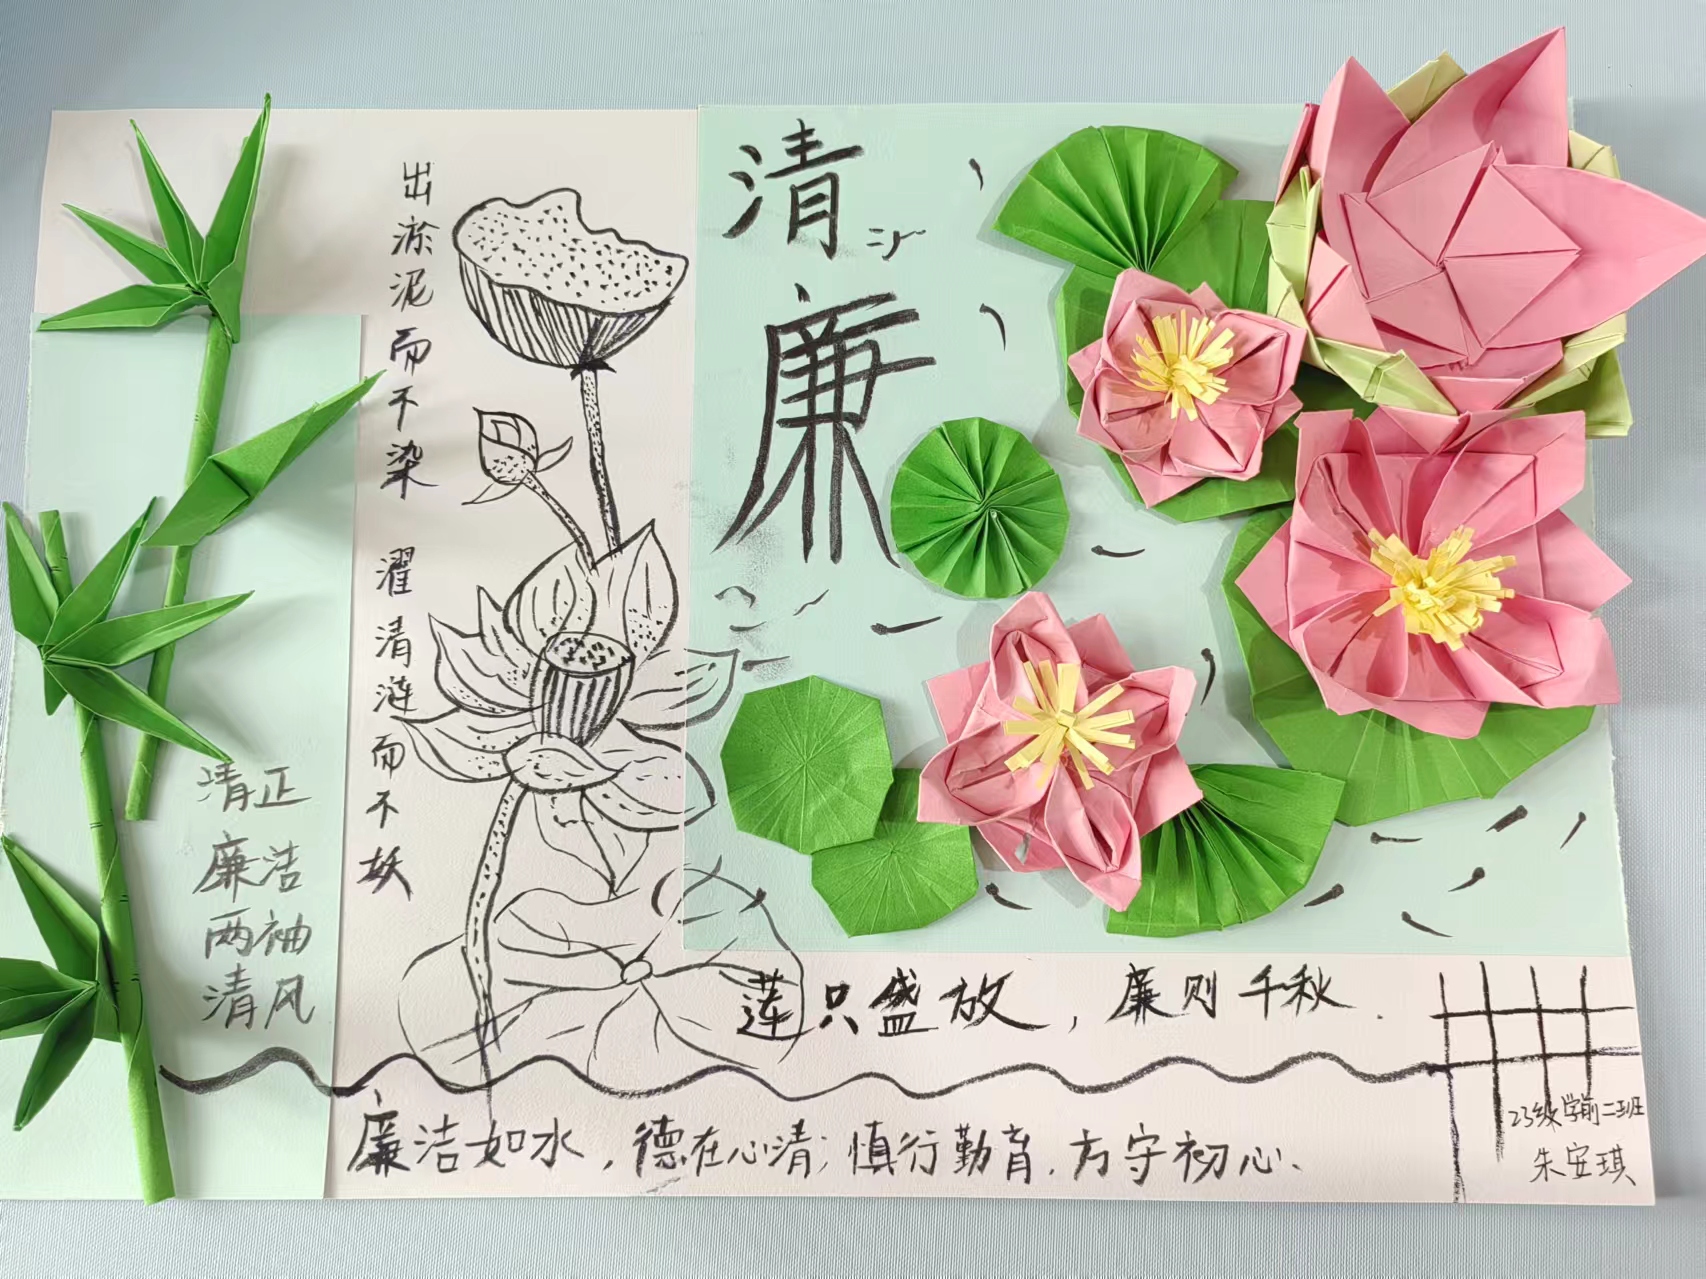 清
廉
出淤泥而不染
濯清涟而不妖
清正
廉洁
两袖
清风
莲只盛放，廉则千秋.
廉洁如水，德在心清；慎行勤育.方守初心.
23级学前二班
朱安琪